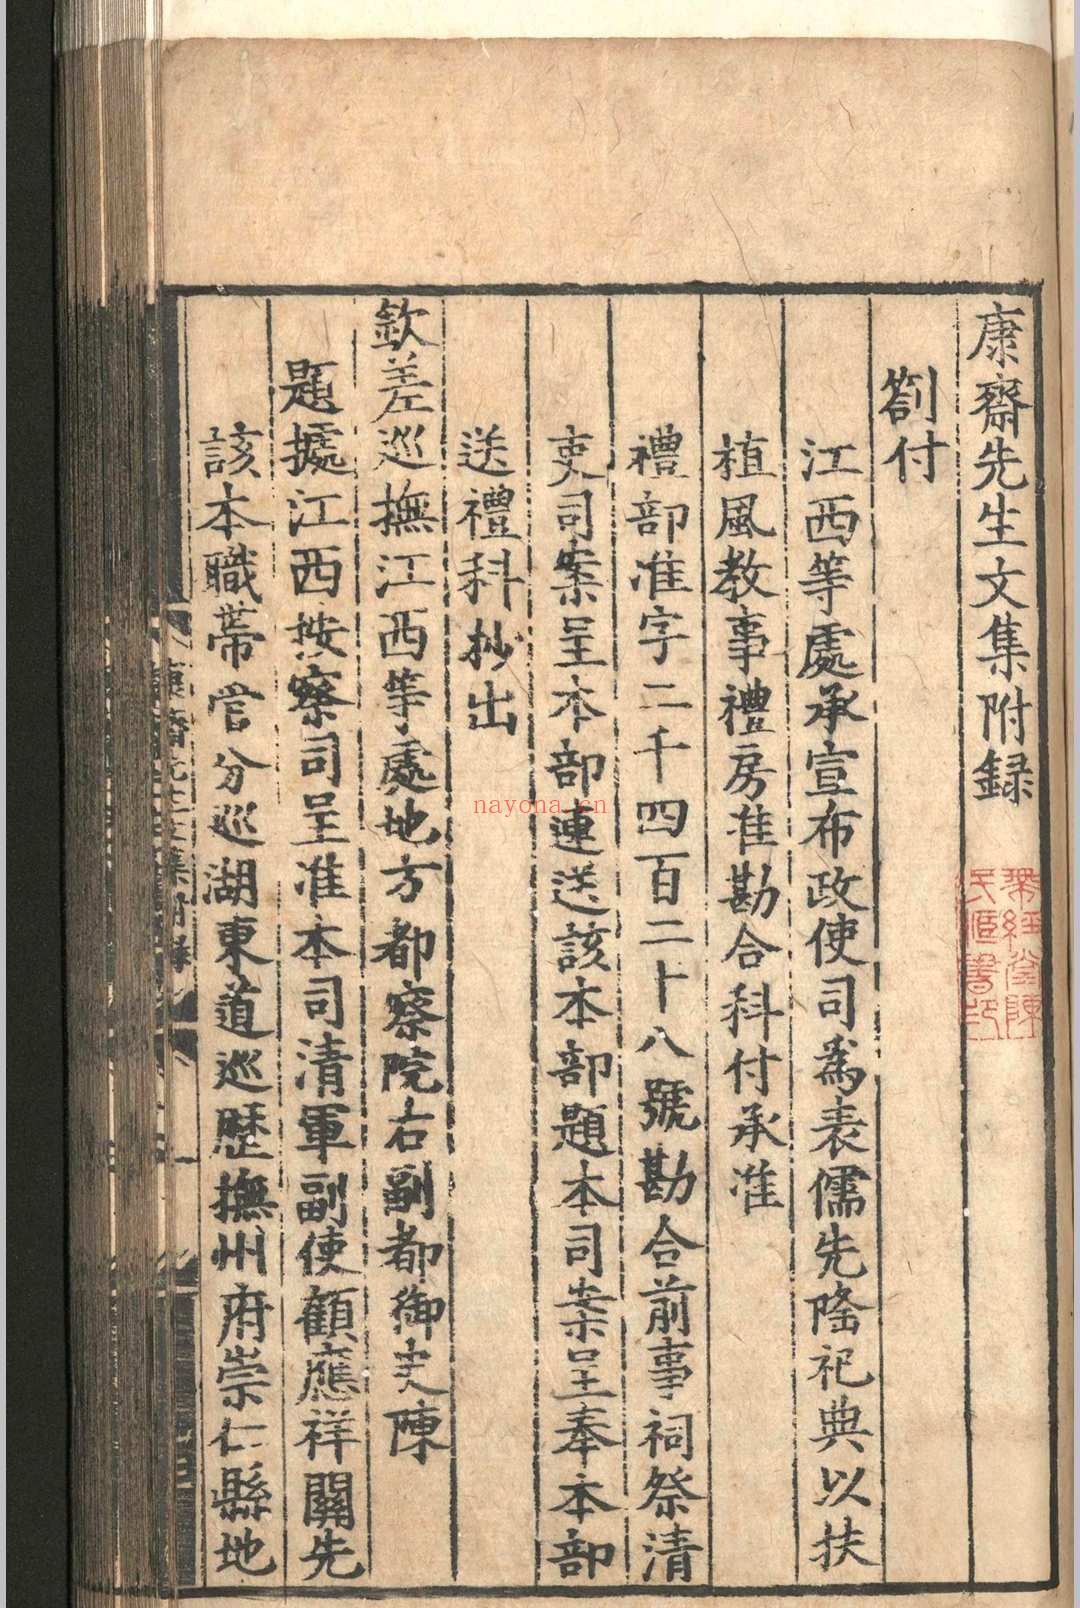 康齋先生文集附録
劄付
江西等處承宣布政使司爲表儒先隆祀典以扶
植風教事禮房准勘合科付承准
禮部准字二千四百二十八號勘合前事祠祭清
吏司案呈本部連送該本部題本司案呈奉本部
送禮科抄出
欽差巡撫江西等處地方都察院右副都御史陳
題據江西按察司呈准本司清軍副使顧應祥關先
該本職帶管分巡湖東道巡歷撫州府崇仁縣地
nayona.cn